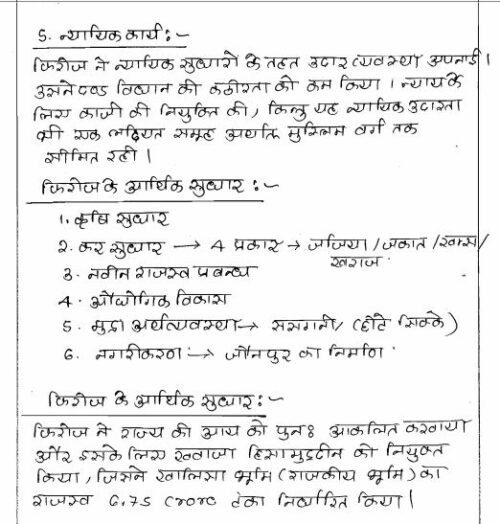 5. न्यायिक कार्य :-
फिरोज ने न्यायिक सुधारों के तहत उदार व्यवस्था अपनाई।
उसने दण्ड विधान की कठोरता को कम किया। न्याय के
लिए काजी की नियुक्ति की, किन्तु यह न्यायिक उदारता
भी एक लक्षित समूह अर्थात मुस्लिम वर्ग तक
सीमित रही।
फिरोज के आर्थिक सुधार :-
1. कृषि सुधार
2. कर सुधार → 4 प्रकार → जजिया/जकात/खम्स/
खराज
3. नवीन राजस्व प्रबन्ध
4. औधोगिक विकास
5. मुद्रा अर्थव्यवस्था → ससगानी/(छोटे सिक्के)
6. नगरीकरण → जौनपुर का निर्माण
फिरोज के आर्थिक सुधार :-
फिरोज ने राज्य की आय को पुनः आकलित करवाया
और इसके लिए ख्वाजा हिसामुद्दीन को नियुक्त
किया, जिसने खालिसा भूमि (राजकीय भूमि) का
राजस्व 6.75 crore टंका निर्धारित किया।